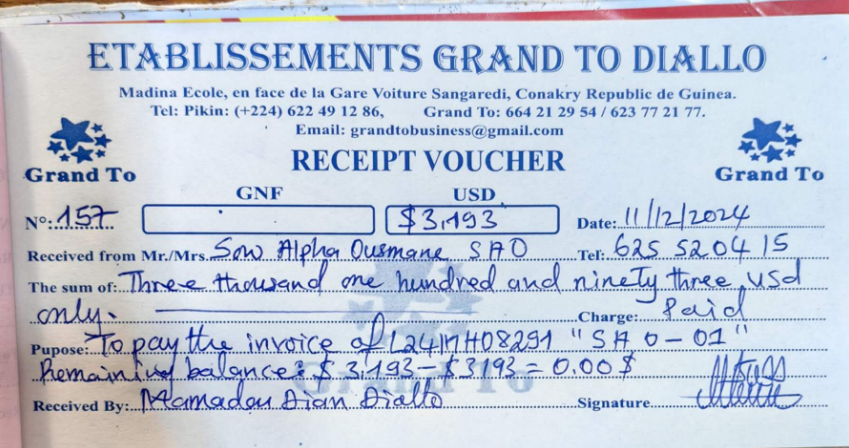 ETABLISSEMENTS GRAND TO DIALLO
Madina Ecole, en face de la Gare Voiture Sangaredi, Conakry Republic de Guinea.
Tel: Pikin: (+224) 622 49 12 86, Grand To: 664 21 29 54 / 623 77 21 77.
Email: grandtobusiness@gmail.com
Grand To RECEIPT VOUCHER Grand To
GNF USD
N°: 157 $3,193 Date: 11/12/2024
Received from Mr./Mrs. Sow Alpha Ousmane SAO Tel: 625 520415
The sum of: Three thousand one hundred and ninety three, usd
only. Charge: Paid
Pupose: To pay the invoice of "SAO-01"
Remaining balance: $3,193 - $3193 = 0.00$
Received By: Mamadou Dian Diallo Signature